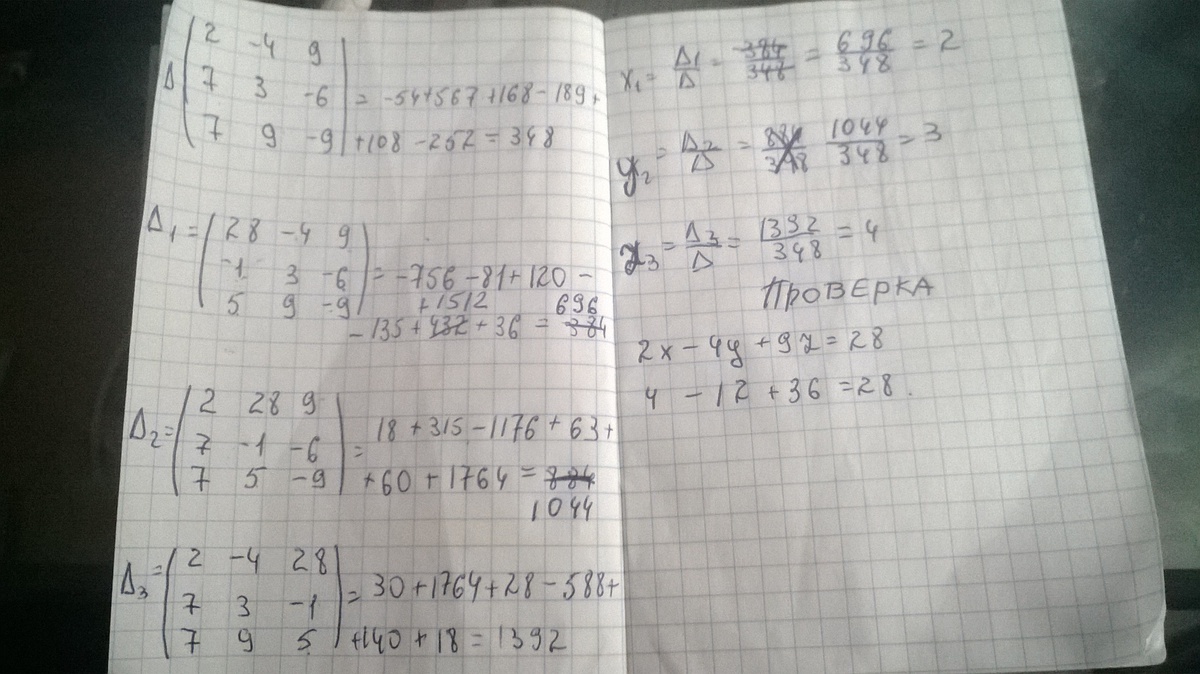 Δ | 2 -4 9 |
| 7 3 -6 | = -54+567+168-189+
| 7 9 -9 | +108-252=348
Δ₁= | 28 -4 9 |
| -1 3 -6 | = -756-81+120-
| 5 9 -9 | +1512 696
-135+432+36 = 384
Δ₂= | 2 28 9 |
| 7 -1 -6 | = 18+315-1176+63+
| 7 5 -9 | +60+1764=884
1044
Δ₃= | 2 -4 28 |
| 7 3 -1 | = 30+1764+28-588+
| 7 9 5 | +140+18=1392
x₁= Δ₁/Δ = 384/348 = 696/348 = 2
y₂= Δ₂/Δ = 884/348 1044/348 = 3
z₃= Δ₃/Δ = 1392/348 = 4
ПРОВЕРКА
2x-4y+9z=28
4 -12 +36 =28.